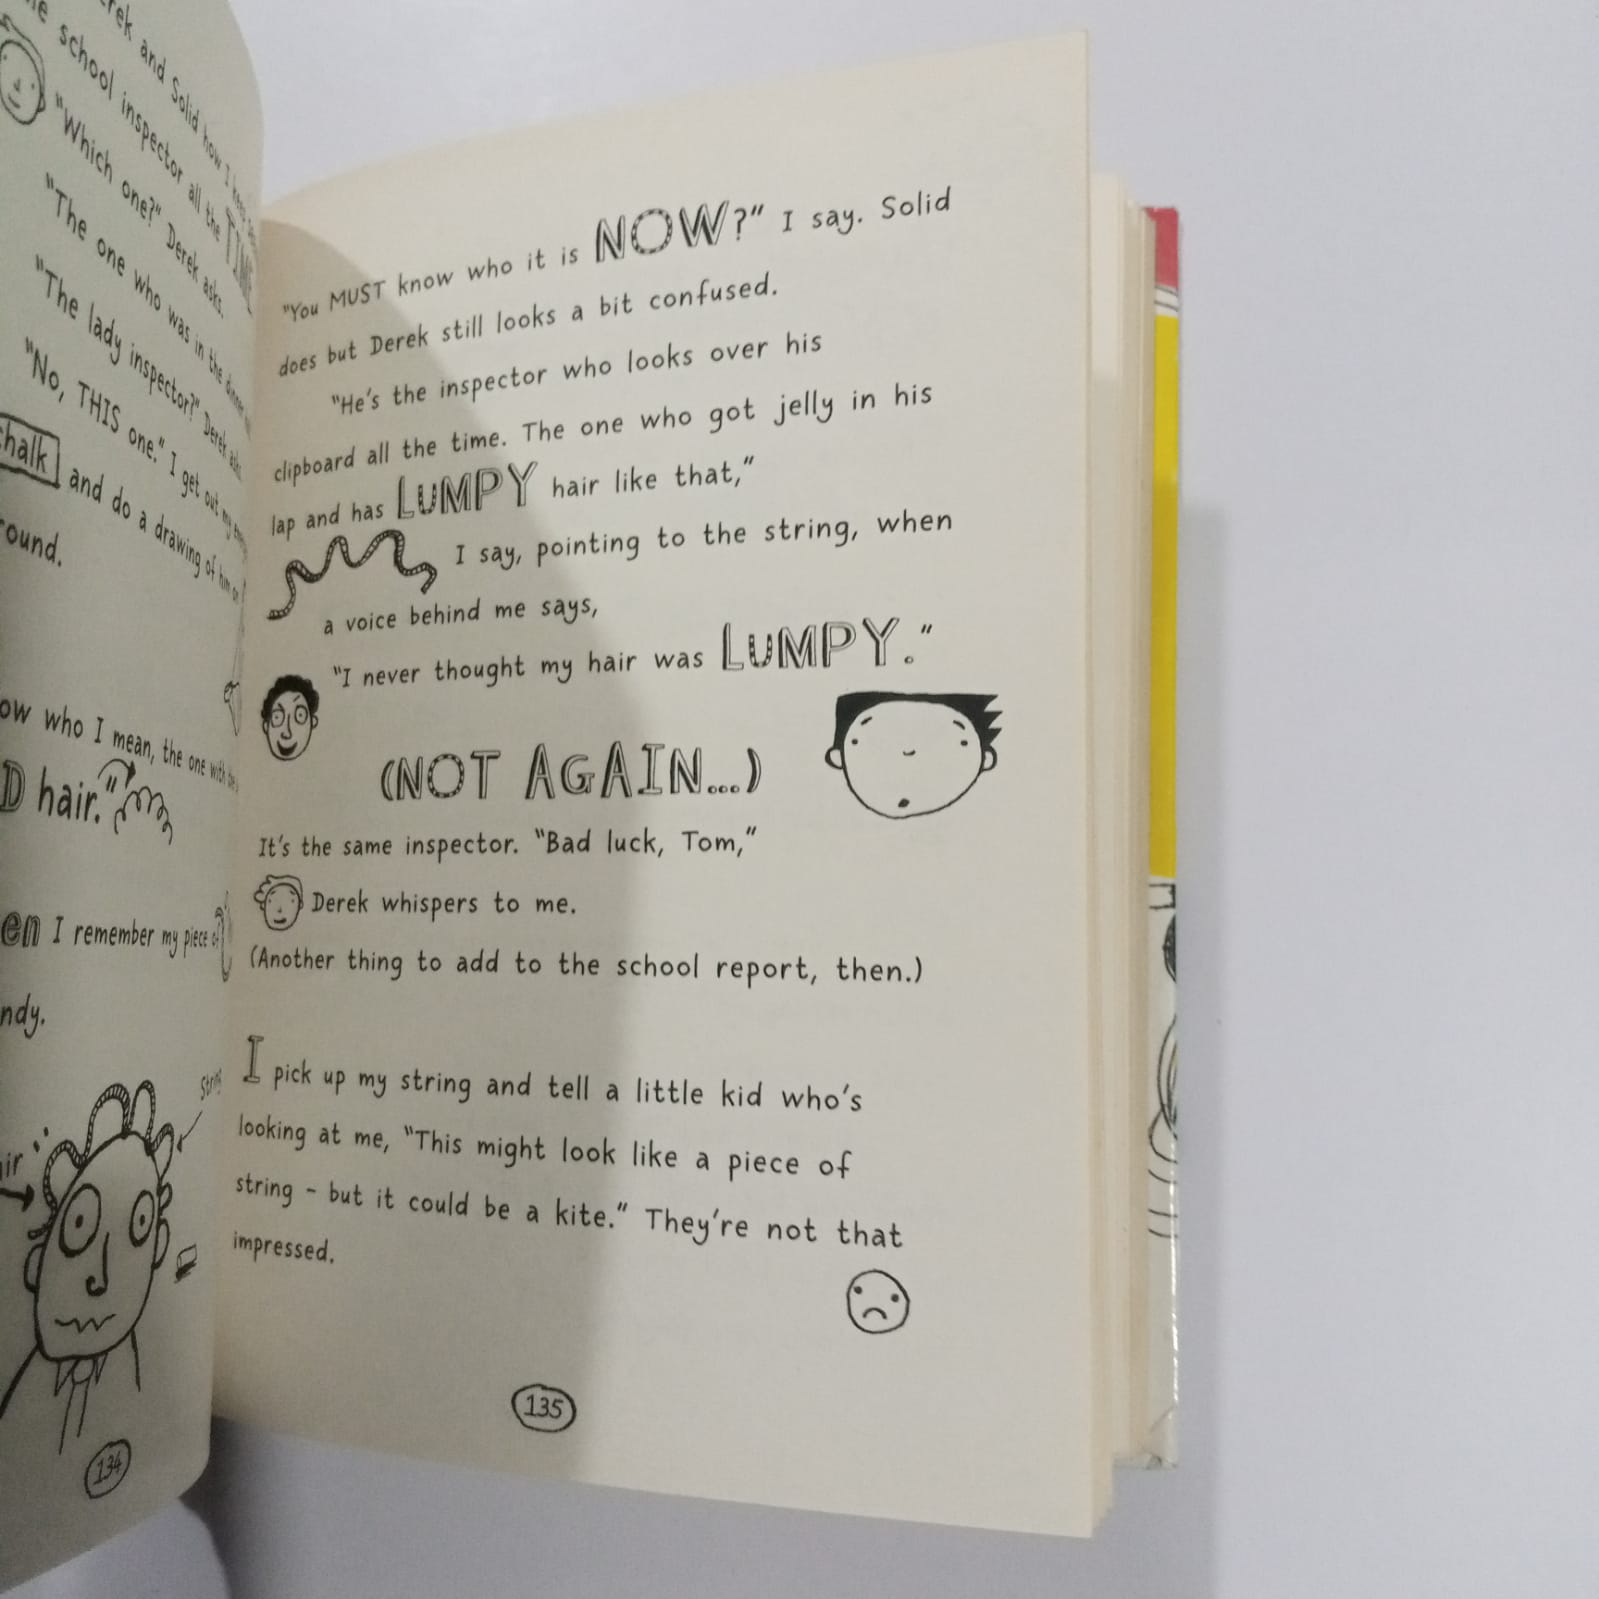 rek and Solid how I keep
school inspector all the TIME
"Which one?" Derek asks.
"The one who was in the dinner
"The lady inspector?" Derek asks.
"No, THIS one." I get out my
chalk and do a drawing of him on
round.
ow who I mean, the one with the
D hair."
en I remember my piece of
ndy.
String
air
134
"You MUST know who it is NOW?" I say. Solid
does but Derek still looks a bit confused.
"He's the inspector who looks over his
clipboard all the time. The one who got jelly in his
lap and has LUMPY hair like that,"
I say, pointing to the string, when
a voice behind me says,
"I never thought my hair was LUMPY."
(NOT AGAIN...)
It's the same inspector. "Bad luck, Tom,"
Derek whispers to me.
(Another thing to add to the school report, then.)
I pick up my string and tell a little kid who's
looking at me, "This might look like a piece of
string - but it could be a kite." They're not that
impressed.
135